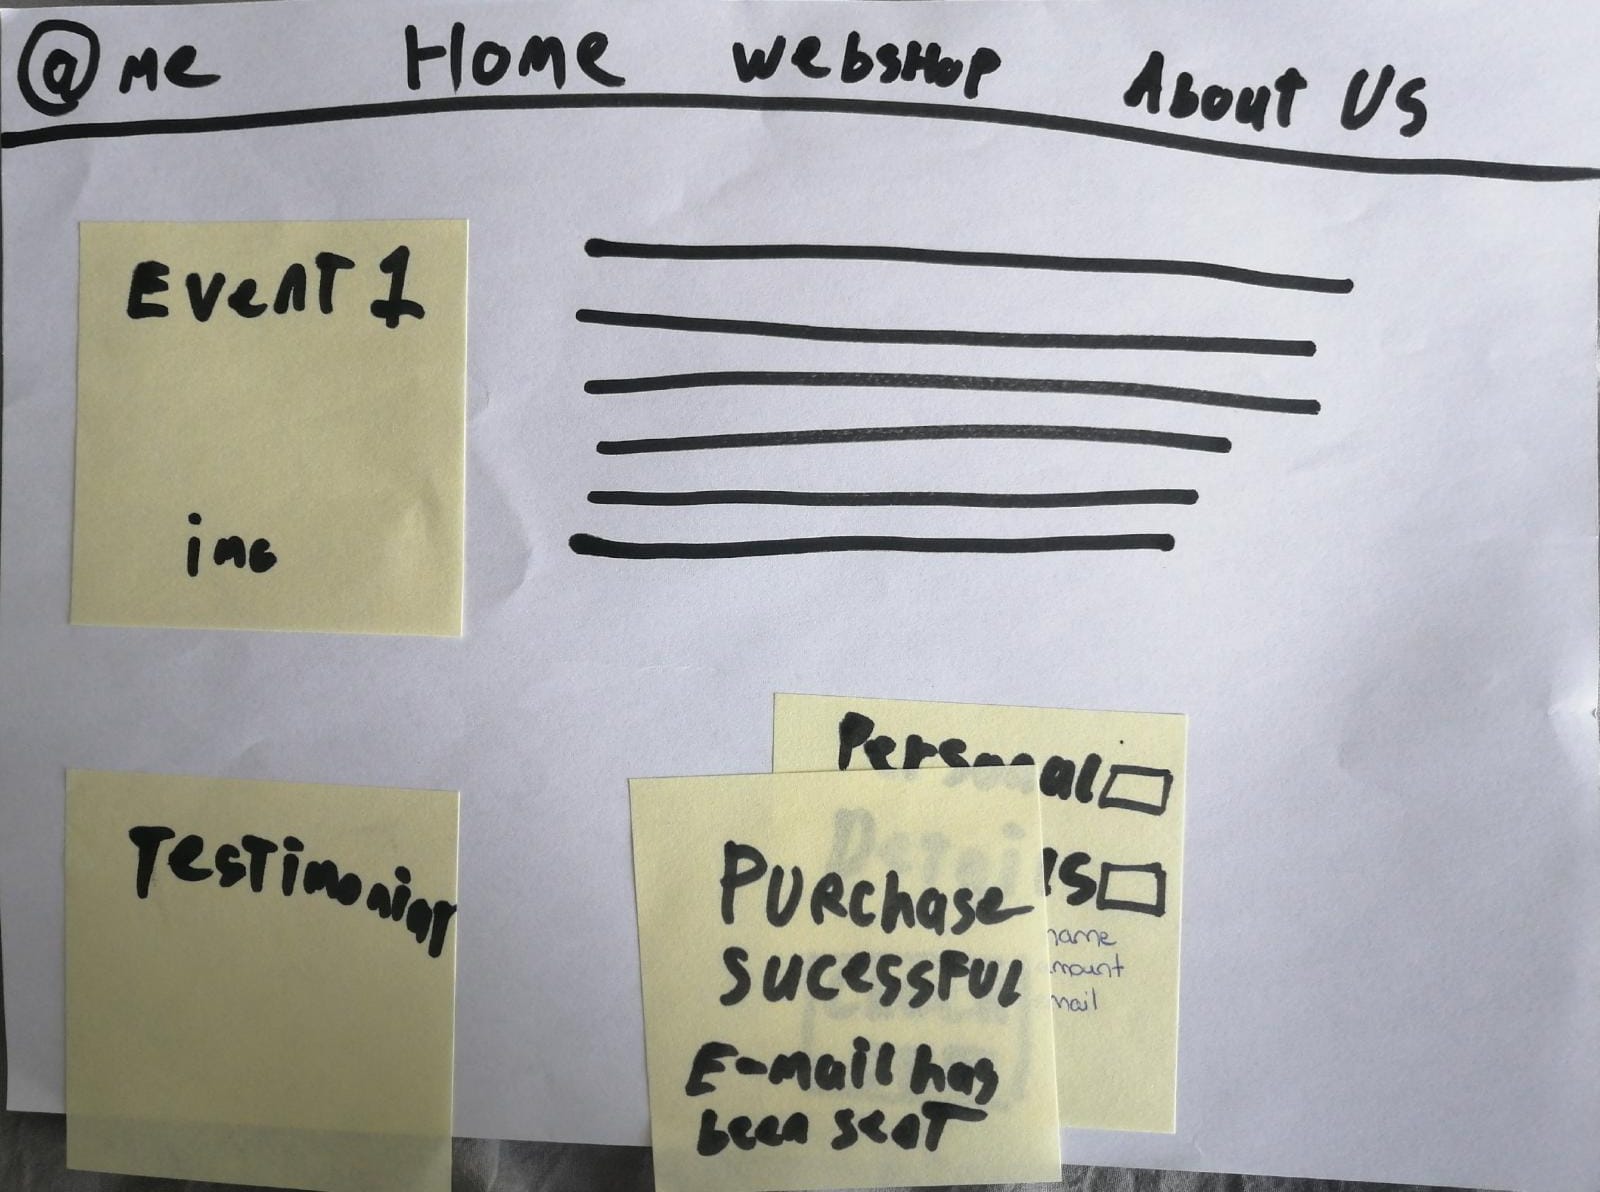 @ me Home webshop About Us
Event 1
img
Testimonial
Personal
ls
name
mount
mail
Purchase
sucessful
E-mail has
been sent